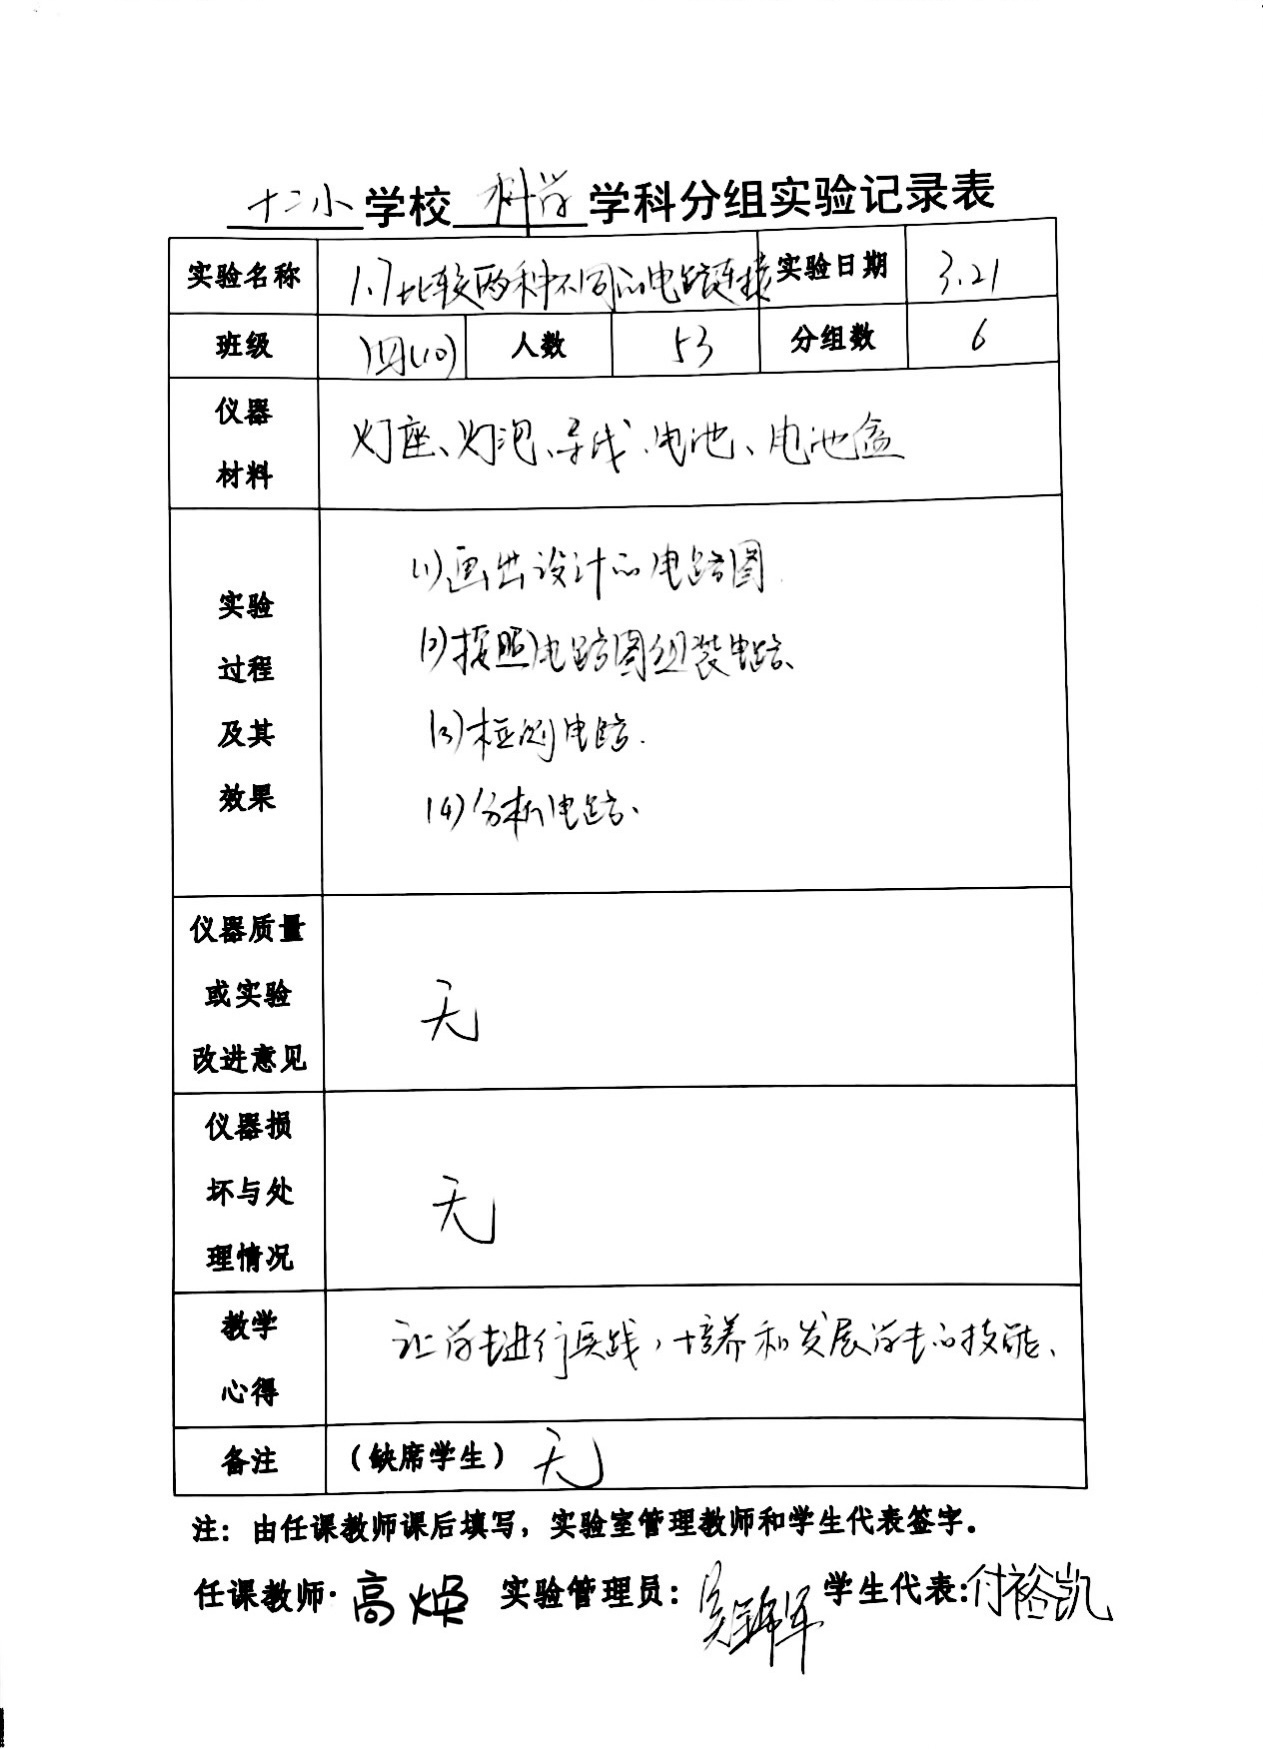 十二小学校 科学 学科分组实验记录表
实验名称 1.7比较两种不同的电路连接 实验日期 3.21
班级 四(10) 人数 53 分组数 6
仪器
材料
灯座、灯泡、导线、电池、电池盒
实验
过程
及其
效果
(1)画出设计的电路图
(2)按照电路图组装电路、
(3)检测电路.
(4)分析电路、
仪器质量
或实验
改进意见
无
仪器损
坏与处
理情况
无
教学
心得
让学生进行实践,培养和发展学生的技能、
备注 (缺席学生) 无
注：由任课教师课后填写，实验室管理教师和学生代表签字。
任课教师: 高焕 实验管理员: 学生代表:付裕凯